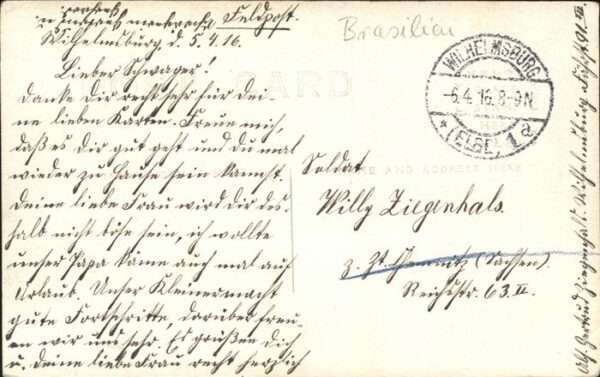 Feldpost.
Wilhelmsburg, d. 5.4.16.
Lieber Schwager!
Danke Dir recht sehr für Dei-
ne lieben Karten. Freue mich,
daß es Dir gut geht und Du mal
wieder zu Hause sein kannst.
Deine liebe Frau wird Dir des-
halb nicht böse sein, ich wollte
unser Papa käme auch mal auf
Urlaub. Unser Kleiner macht
gute Fortschritte, darüber freu-
en wir uns sehr. Es grüßen Dich
u. Deine liebe Frau recht herzlich
Brasilien
CARD
WILHELMSBURG
-6.4.16.8-9N.
* (ELBE) 1a
AND ADDRESS
Soldat
Willy Ziegenhals.
z. Zt. Chemnitz (Sachsen).
Reichsstr. 63. II.
Abs. Gertrud Ziegenhals. Wilhelmsburg